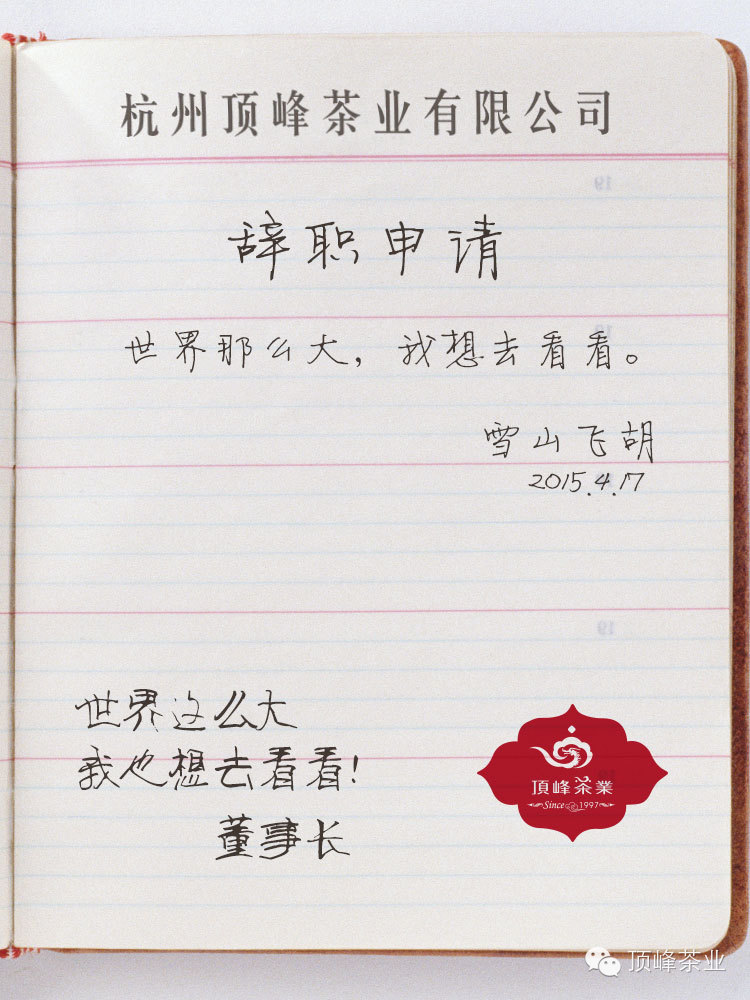 杭州顶峰茶业有限公司
辞职申请
世界那么大，我想去看看。
雪山飞胡
2015.4.17
世界这么大
我也想去看看！
董事长
頂峰茶業
Since 1997
顶峰茶业